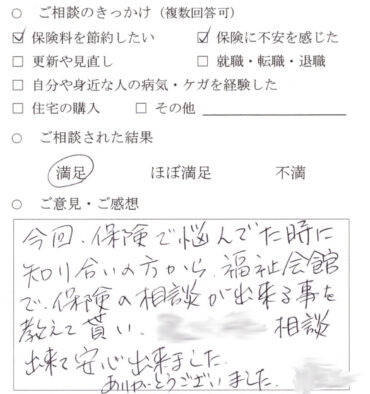 ○ ご相談のきっかけ（複数回答可）
☑ 保険料を節約したい ☑ 保険に不安を感じた
□ 更新や見直し □ 就職・転職・退職
□ 自分や身近な人の病気・ケガを経験した
□ 住宅の購入 □ その他
○ ご相談された結果
満足 ほぼ満足 不満
○ ご意見・ご感想
今回、保険で悩んでた時に
知り合いの方から、福祉会館
で、保険の相談が出来る事を
教えて貰い、 相談
出来て安心出来ました。
ありがとうございました。